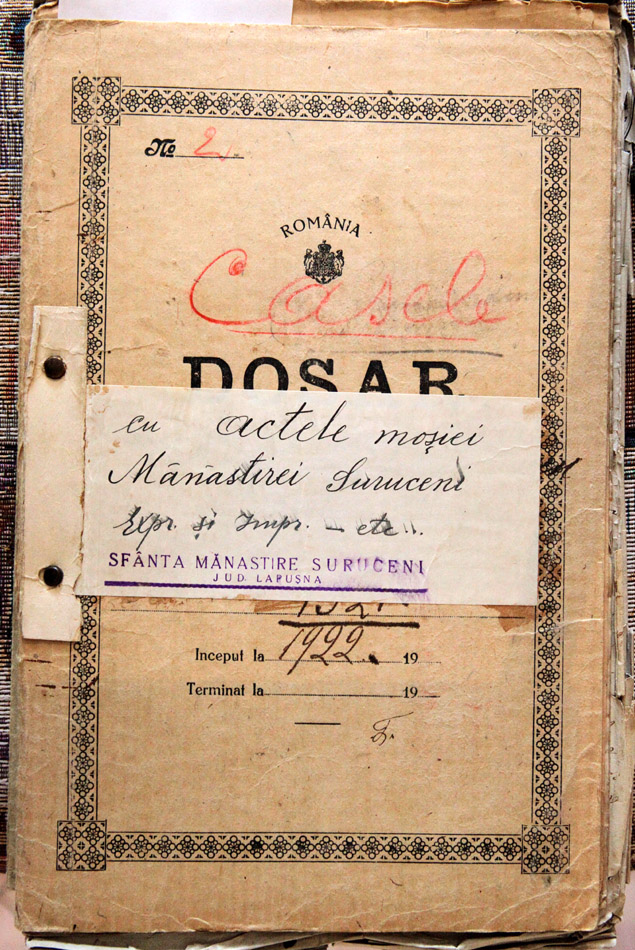 No 2
ROMÂNIA
Casele
DOSAR
cu actele moșiei
Mănăstirei Suruceni
Expr. și Impr. – etc..
SFÂNTA MĂNASTIRE SURUCENI
JUD LAPUȘNA
Inceput la 1922. 19
Terminat la 19